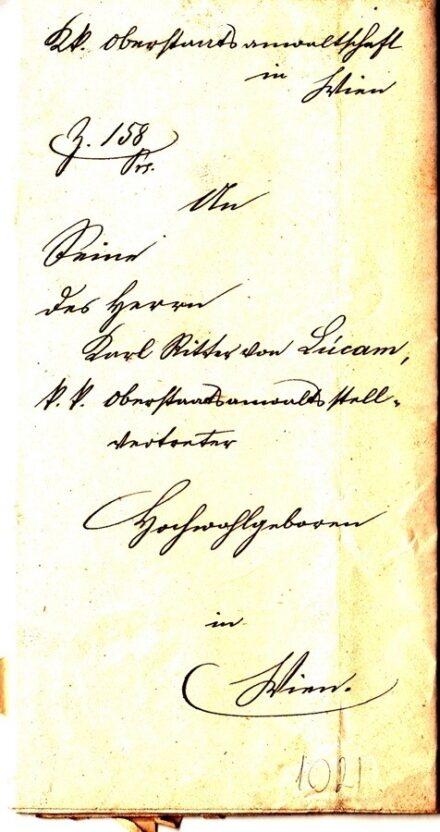 K.k. Oberstaatsanwaltschaft
in Wien
Z. 158
Prs.
An
Seine
des Herrn
Karl Ritter von Lúcam,
k. k. Oberstaatsanwaltsstell-
vertreter
Hochwohlgeboren
in
Wien.
1021